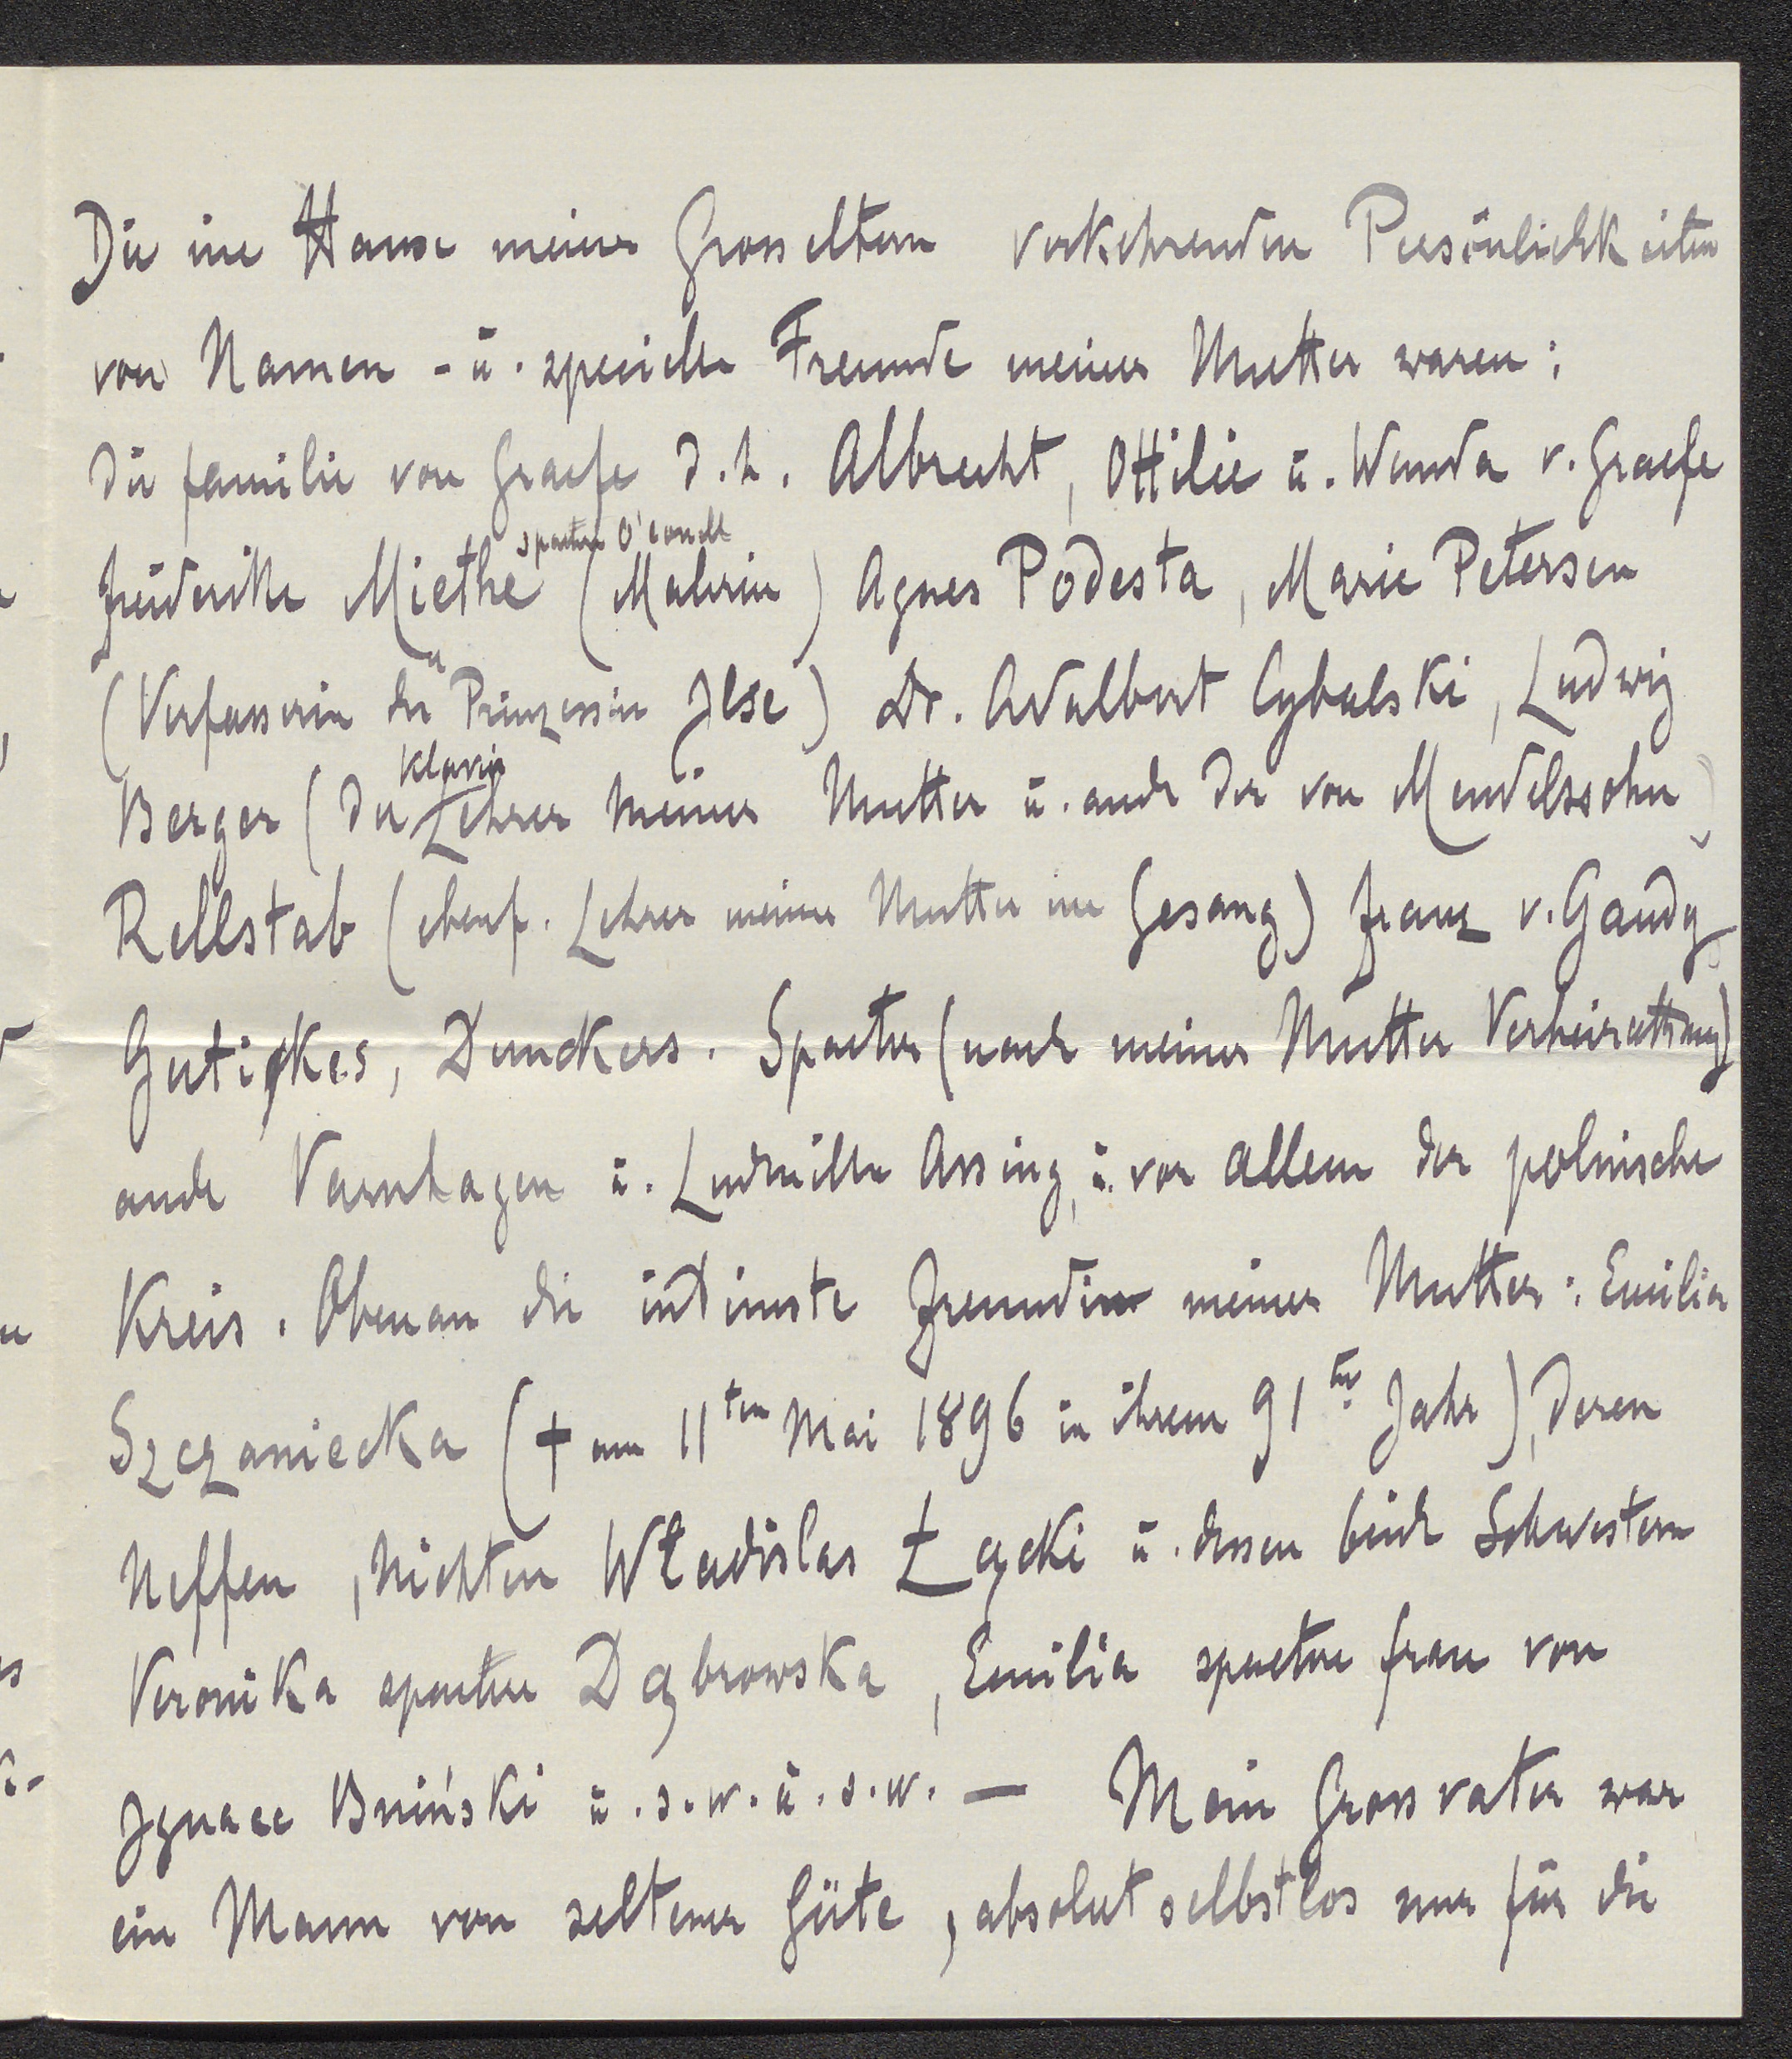 Die im Hause meiner Grosseltern verkehrenden Persönlichkeiten
von Namen - u. specielle Freunde meiner Mutter waren:
die familie von Graefe d.h. Albrecht, Ottilie u. Wanda v. Graefe
spaeter O'conell
Friederike Miethe (Malerin) Agnes Podesta, Marie Petersen
(Verfasserin der "Prinzessin Ilse) Dr. Adalbert Cybulski, Ludwig
Klavier
Berger (der Lehrer meiner Mutter u. auch der von Mendelssohn)
Rellstab (ebenf. Lehrer meiner Mutter im Gesang) Franz v. Gaudy
Gutikes, Dunckers. Spaeter (nach meiner Mutter Verheirathung)
auch Varnhagen u. Ludmilla Assing, u. vor allem der polnische
Kreis. Obenan die intimste Freundin meiner Mutter: Emilia
Szczaniecka († am 11ten Mai 1896 in ihrem 91ten Jahr), deren
Neffen, Nichten Władislas Łącki u. dessen beide Schwestern
Veronika spaeter Dąbrowska, Emilia spaetere frau von
Ignace Bniński u.s.w. u.s.w. — Mein Grossvater war
ein Mann von seltener Güte, absolut selbstlos nur für die